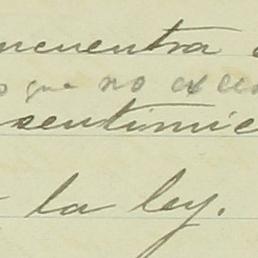 ncuentra
que no exce
sentimie
la ley.